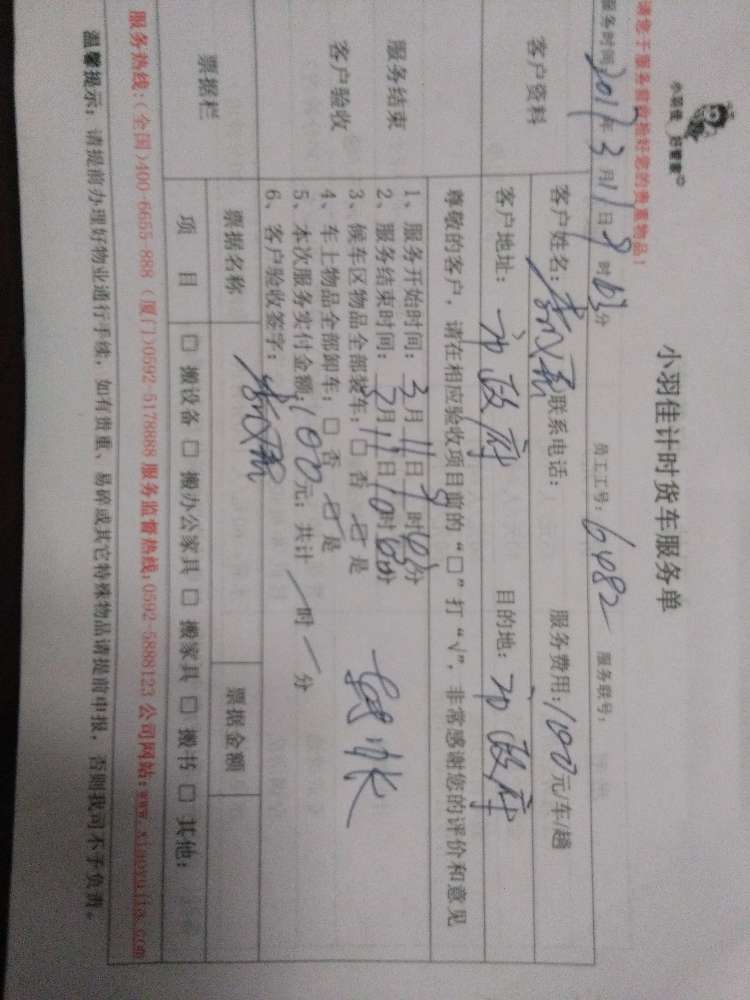 小羽佳 好管家
请您于服务前收拾好您的贵重物品！
小羽佳计时货车服务单
服务时间 2017年3月11日 9时 分 员工工号：6482 服务联号：
客户资料
客户姓名： 联系电话： 服务费用：100元/车/趟
客户地址：市政府 目的地：市政府
尊敬的客户，请在相应验收项目前的“□”打“√”，非常感谢您的评价和意见
服务结束
客户验收
1、服务开始时间：3月11日9时 分
2、服务结束时间：3月11日10时 分
3、候车区物品全部装车：□ 否 ☑ 是
4、车上物品全部卸车：□ 否 ☑ 是
5、本次服务实付金额：100元；共计 / 时 / 分
6、客户验收签字：
票据栏
票据名称 票据金额
项 目 □ 搬设备 □ 搬办公家具 □ 搬家具 □ 搬书 □ 其他：
服务热线：（全国）400-6655-888（厦门）0592-5178888 服务监督热线：0592-5888123 公司网站：www.xiaoyujia.com
温馨提示：请提前办理好物业通行手续，如有贵重、易碎或其它特殊物品请提前申报，否则我司不予负责。